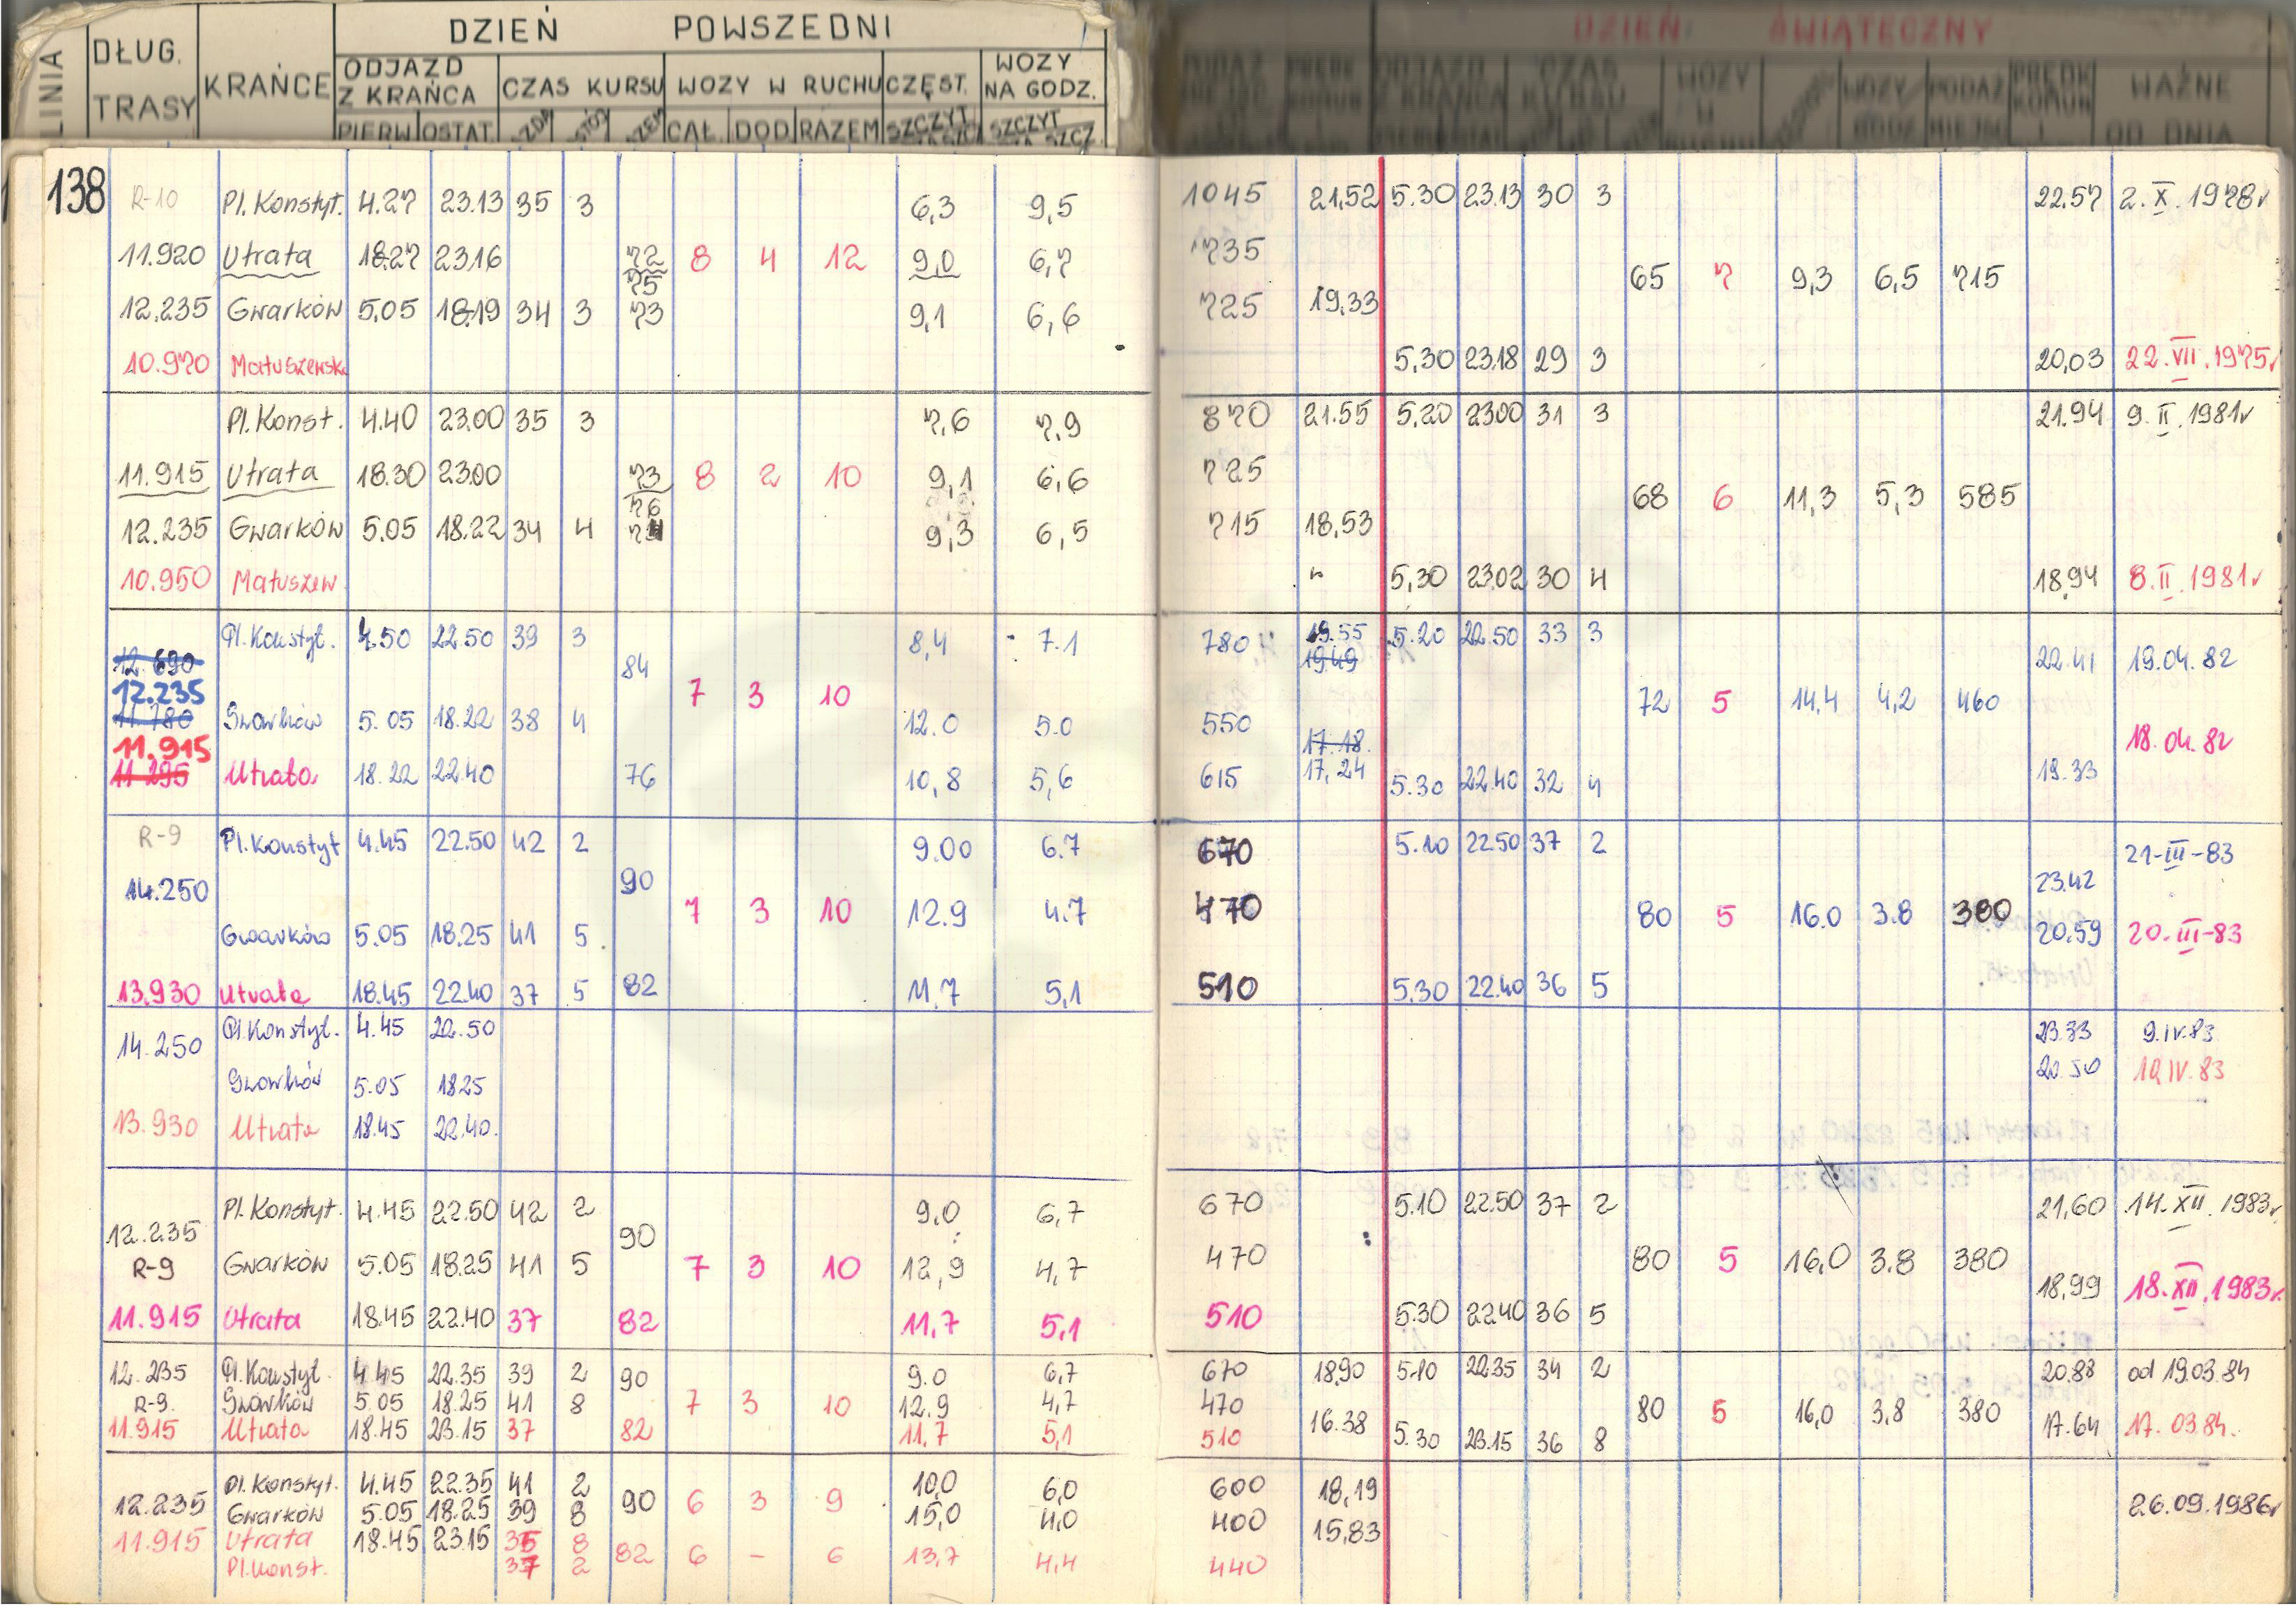 DZIEŃ POWSZEDNI
LINIA DŁUG. TRASY KRAŃCE ODJAZD Z KRAŃCA CZAS KURSU WOZY W RUCHU CZĘST. WOZY NA GODZ.
PIERW OSTAT. CAŁ. DOD RAZEM SZCZYT SZCZYT
DZIEŃ ŚWIĄTECZNY
ODJAZD Z KRAŃCA CZAS KURSU WOZY W WOZY PODAŻ MIEJSC PRĘDK KOMUN WAŻNE OD DNIA
138 R-10 Pl. Konstyt. 4.27 23.13 35 3 6,3 9,5 1045 21,52 5.30 23.13 30 3 22.57 2. X. 1978r
11.920 Utrata 18.27 23.16 72 8 4 12 9,0 6,7 735
75 65 7 9,3 6,5 715
12.235 Gwarków 5.05 18.19 34 3 73 9,1 6,6 725 19,33
10.970 Matuszewsk 5,30 23.18 29 3 20,03 22. VII. 1975r
Pl. Konst. 4.40 23.00 35 3 7,6 7,9 870 21.55 5.20 23.00 31 3 21.94 9. II. 1981r
11.915 Utrata 18.30 23.00 73 8 2 10 9,1 6,6 725
76 68 6 11,3 5,3 585
12.235 Gwarków 5.05 18.22 34 4 9,3 6,5 715 18,53
10.950 Matuszew 5,30 23.02 30 4 18,94 8. II. 1981r
Pl. Konstyt. 4.50 22.50 39 3 8,4 7.1 780 19.55 5.20 22.50 33 3
12.690 84 19.49 22.41 19.04.82
12.235 7 3 10 72 5 14,4 4,2 460
11.780 Gwarków 5.05 18.22 38 4 12.0 5.0 550
11.915 17.18 18.04.82
11.295 Utrata 18.22 22.40 76 10,8 5,6 615 17,24 5.30 22.40 32 4 19.33
R-9 Pl. Konstyt 4.45 22.50 42 2 9.00 6.7 670 5.10 22.50 37 2 21-III-83
14.250 90 23.42
7 3 10 12.9 4.7 470 80 5 16.0 3.8 380
Gwarków 5.05 18.25 41 5 20,59 20.III-83
13.930 Utrata 18.45 22.40 37 5 82 11,7 5,1 510 5.30 22.40 36 5
Pl. Konstyt. 4.45 22.50 23.33 9.IV.83
14.250
Gwarków 5.05 18.25 20.50 10.IV.83
13.930 Utrata 18.45 22.40
Pl. Konstyt. 4.45 22.50 42 2 9,0 6,7 670 5.10 22.50 37 2 21,60 14. XII. 1983r
12.235 90
R-9 Gwarków 5.05 18.25 41 5 7 3 10 12,9 4,7 470 80 5 16,0 3.8 380 18,99 18. XII. 1983r
11.915 Utrata 18.45 22.40 37 82 11,7 5,1 510 5.30 22.40 36 5
12.235 Pl. Konstyt. 4.45 22.35 39 2 90 9.0 6,7 670 18.90 5.10 22.35 34 2 20.88 od 19.03.84
R-9. Gwarków 5.05 18.25 41 8 7 3 10 12.9 4,7 470 80 5 16,0 3,8 380
11.915 Utrata 18.45 23.15 37 82 11,7 5,1 510 16.38 5.30 23.15 36 8 17.64 17.03.84.
Pl. Konstyt. 4.45 22.35 41 2 10,0 6,0 600 18,19
12.235 Gwarków 5.05 18.25 39 8 90 6 3 9 15,0 4,0 400 15,83 26.09.1986r
11.915 Utrata 18.45 23.15 35 8 82 6 – 6 13,7 4,4 440
Pl. Konst. 37 2